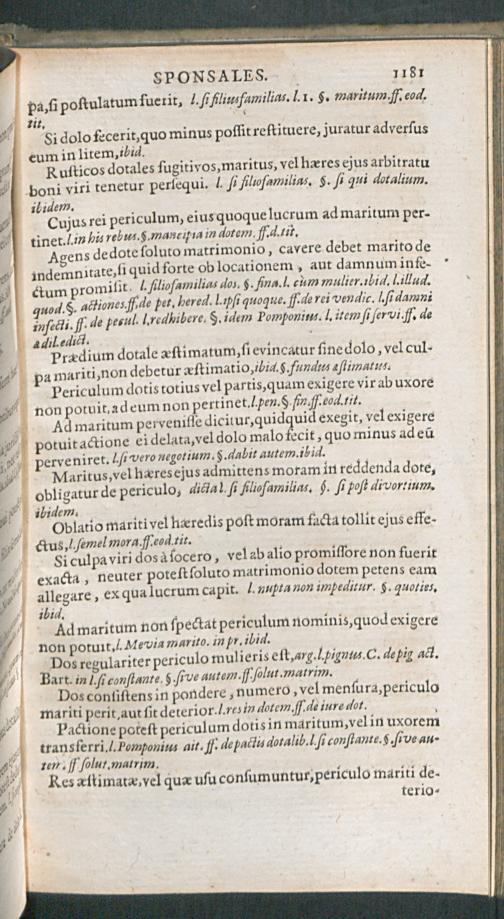 SPONSALES. 1181
pa,ſi poſtulatum fuerit, l. ſi filiusfamilias. l. 1. §. maritum.ff. eod.
tit.
Si dolo fecerit,quo minus poſſit reſtituere, juratur adverſus
eum in litem,ibid.
Ruſticos dotales fugitivos,maritus, vel hæres ejus arbitratu
boni viri tenetur perſequi. l. ſi filiofamilias. §. ſi qui dotalium.
ibidem.
Cujus rei periculum, eius quoque lucrum ad maritum per-
tinet.l.in his rebus.§.mancipia in dotem. ff.d.tit.
Agens de dote ſoluto matrimonio, cavere debet marito de
indemnitate,ſi quid forte ob locationem, aut damnum infe-
ctum promiſit. l. filiofamilias dos. §. fina.l. cùm mulier.ibid. l.illud.
quod.§. actiones.ff.de pet, hered. l.ipſi quoque. ff.de rei vendic. l.ſi damni
infecti.ff. de pecul. l,redhibere. §. idem Pomponius. l, item ſi ſervi.ff. de
ædil.edict.
Prædium dotale æſtimatum,ſi evincatur ſine dolo, vel cul-
pa mariti,non debetur æſtimatio,ibid.§.fundus æſtimatus.
Periculum dotis totius vel partis,quam exigere vir ab uxore
non potuit,ad eum non pertinet.l.pen.§.fin.ff.eod.tit.
Ad maritum perveniſſe dicitur,quidquid exegit, vel exigere
potuit actione ei delata,vel dolo malo fecit, quo minus ad eũ
perveniret. l.ſi vero negotium. §.dabit autem.ibid.
Maritus,vel hæres ejus admittens moram in reddenda dote,
obligatur de periculo, dicta l. ſi filiofamilias. §. ſi poſt divortium.
ibidem.
Oblatio mariti vel hæredis poſt moram facta tollit ejus effe-
ctus,l.ſemel mora.ff.eod.tit.
Si culpa viri dos à ſocero, vel ab alio promiſſore non fuerit
exacta, neuter poteſt ſoluto matrimonio dotem petens eam
allegare, ex qua lucrum capit. l. nupta non impeditur. §. quoties.
ibid.
Ad maritum non ſpectat periculum nominis,quod exigere
non potuit,l.Mevia marito. in pr. ibid.
Dos regulariter periculo mulieris eſt,arg.l.pignus.C. de pig act.
Bart. in l.ſi conſtante. §.ſive autem.ff.ſolut.matrim.
Dos conſiſtens in pondere, numero, vel menſura,periculo
mariti perit,aut fit deterior.l.res in dotem.ff.de iure dot.
Pactione poteſt periculum dotis in maritum,vel in uxorem
transferri,l.Pomponius ait. ff. de pactis dotalib.l.ſi conſtante.§.ſive au-
tem.ff ſolut.matrim.
Res æſtimatæ,vel quæ uſu conſumuntur,periculo mariti de-
terio-